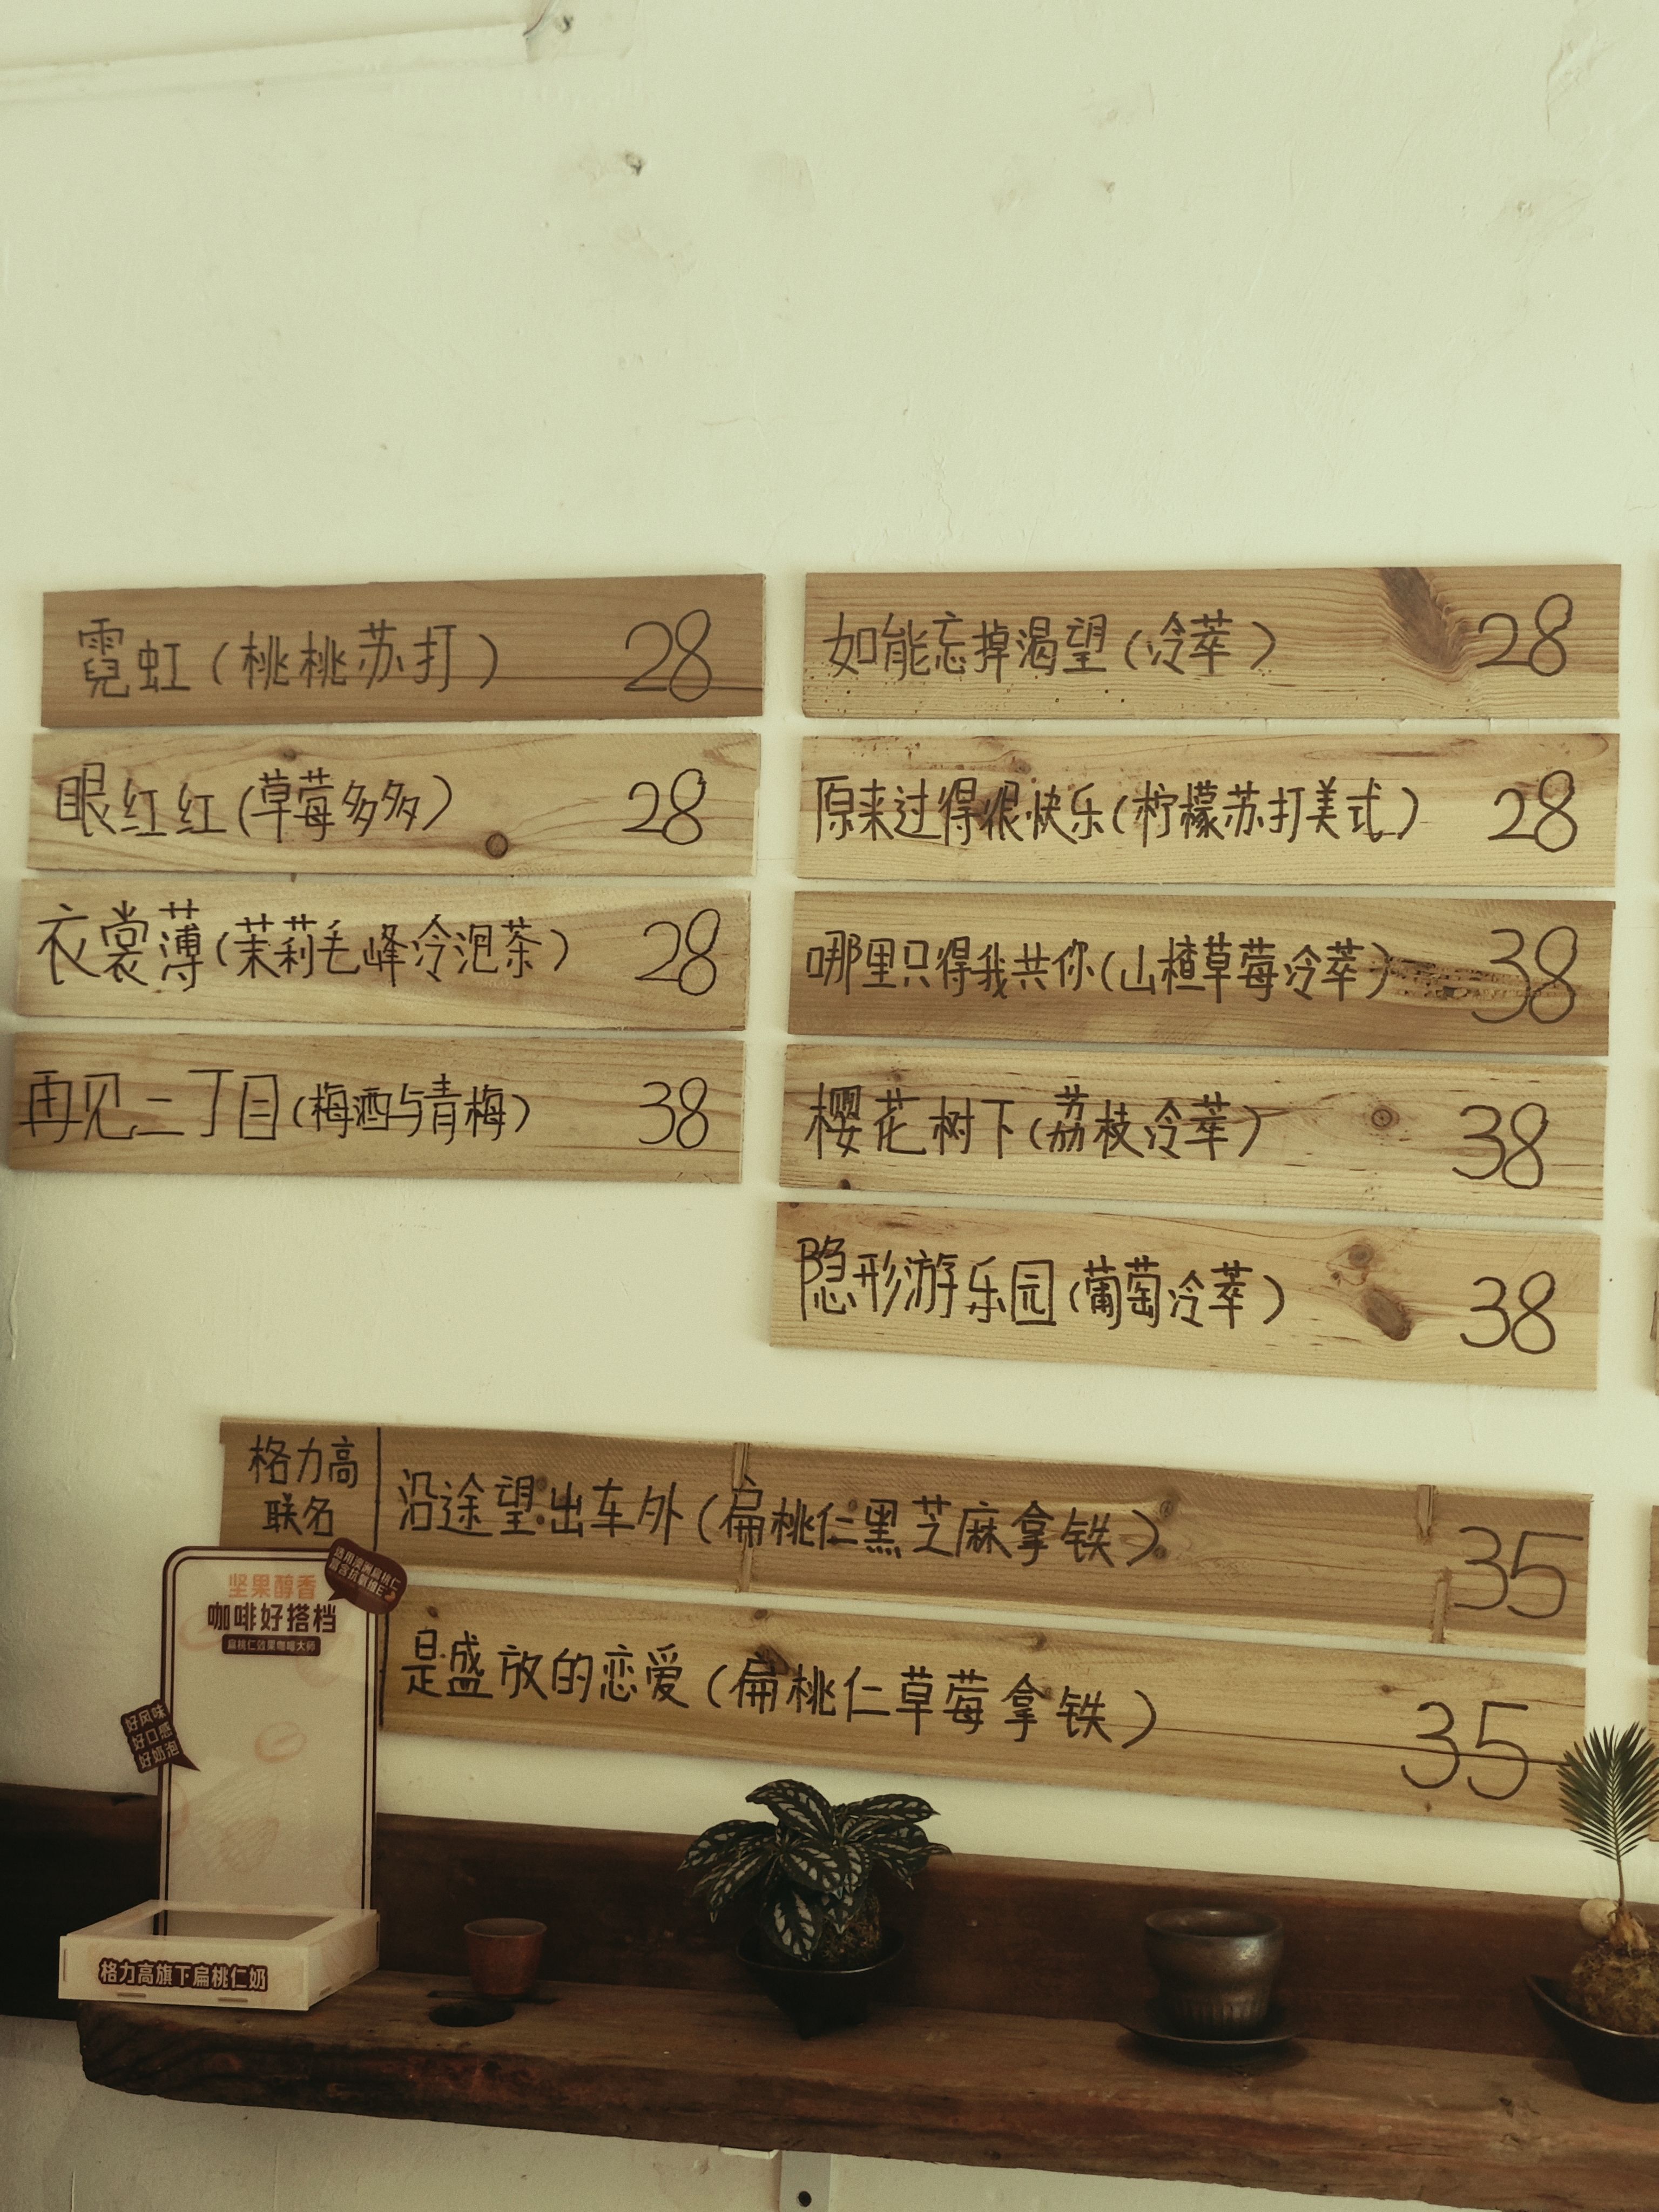 霓虹(桃桃苏打) 28
眼红红(草莓多多) 28
衣裳薄(茉莉毛峰冷泡茶) 28
再见二丁目(梅酒与青梅) 38
如能忘掉渴望(冷萃) 28
原来过得很快乐(柠檬苏打美式) 28
哪里只得我共你(山楂草莓冷萃) 38
樱花树下(荔枝冷萃) 38
隐形游乐园(葡萄冷萃) 38
格力高
联名
沿途望出车外(扁桃仁黑芝麻拿铁) 35
是盛放的恋爱(扁桃仁草莓拿铁) 35
坚果醇香
咖啡好搭档
扁桃仁效果咖啡大师
好风味
好口感
好奶泡
格力高旗下扁桃仁奶